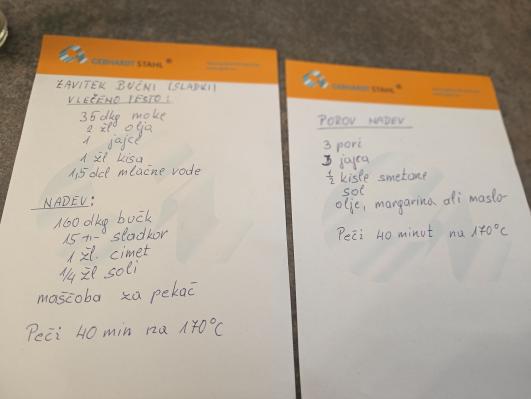 GEBHARDT STAHL®
ZAVITEK BUČNI (SLADKI)
VLEČENO TESTO:
35 dkg moke
2 žl olja
1 jajce
1 žl kisa
1,5 dcl mlačne vode
NADEV:
160 dkg bučk
15 sladkor
1 žl. cimet
1/4 žl soli
maščoba za pekač
Peči 40 min na 170°C
GEBHARDT STAHL®
POROV NADEV
3 pori
3 jajca
1/2 kisle smetane
sol
olje, margarina ali maslo
Peči 40 minut na 170°C